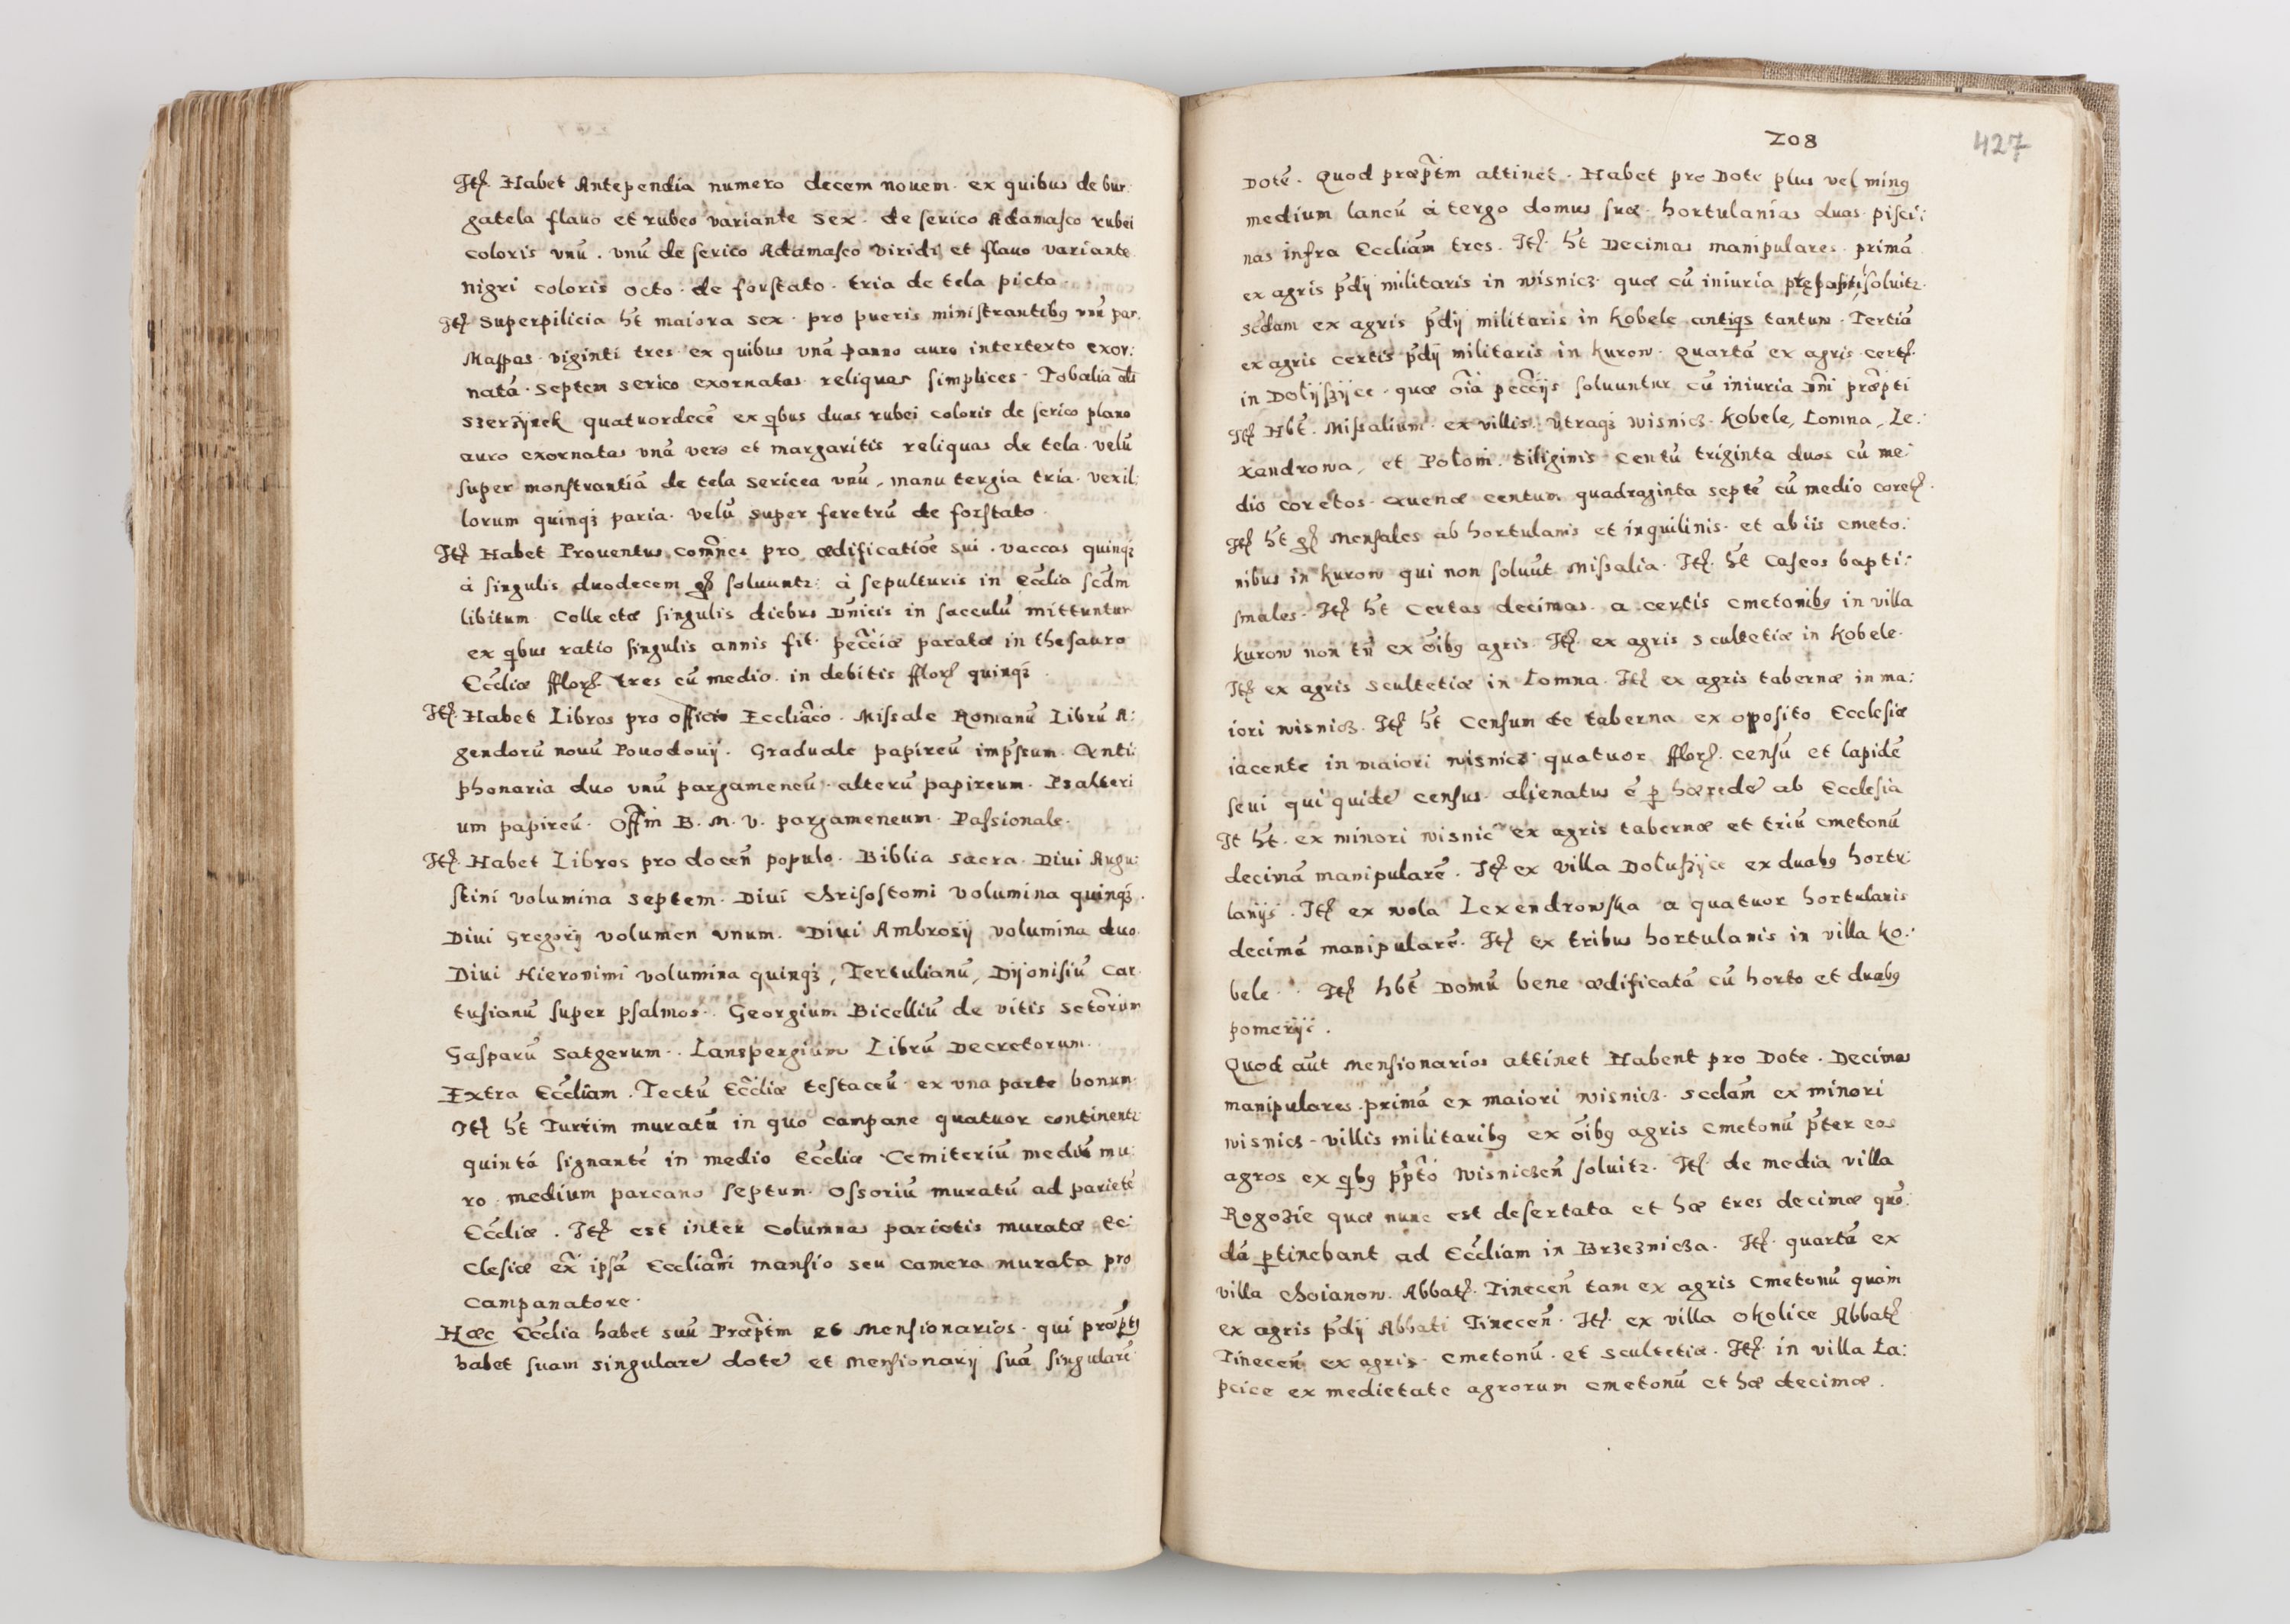 Itꝫ. Habet Antependia numero decem nouem. ex quibus de bur:
gatela flauo et rubeo variante sex. de serico Adamasco rubei
coloris vnũ. vnũ de serico Adamasco viridi et flauo variante
nigri coloris octo. de forstato. tria de tela picta
Itꝫ Superpilicia h̃t maiora sex. pro pueris ministrantibꝰ vnũ par.
Mappas viginti tres ex quibus vnã panno auro intertexto exor:
natã. septem serico exornatas reliquas simplices. Tobalia als
szerzÿnek quatuordecẽ ex qbus duas rubei coloris de serico plano
auro exornatas vnã vero et margaritis reliquas de tela. velũ
super monstrantiã de tela sericea vnũ, manu tergia tria. vexil:
lorum quinqꝫ paria. velũ super feretrũ de forstato.
Itꝫ Habet Prouentus com̃nes pro ædificatiõe sui. vaccas quinqꝫ
à singulis duodecem gꝝ soluuntꝛ: à sepulturis in Eccl̃ia scd̃m
libitum Collectæ singulis diebus Dñicis in sacculũ mittuntur
ex qbus ratio singulis annis fit. pecc̃iæ paratæ in thesauro
Ecc̃liæ fflorꝫ. tres cũ medio. in debitis fflorꝫ quinqꝫ
Itꝫ. Habet Libros pro officio Eccliãco. Missale Romanũ Librũ A:
gendorũ nouũ Pouodouij. Graduale papireũ imp̃ssum. Anti:
phonaria duo vnũ pargameneũ. alterũ papireum. Psalteri
um papireũ. Offm̃ B. M. V. pargameneum. Passionale.
Itꝫ. Habet Libros pro doceñ populo. Biblia sacra. Diui Augu:
stini volumina septem. Diui Chrisostomi volumina quinqꝫ.
Diui Gregorij volumen vnum. Diui Ambrosij volumina duo.
Diui Hieronimi volumina quinqꝫ, Tertulianũ, Dijonisiũ Car.
tusianũ super psalmos. Georgium Bicelliũ de vitis sctõrum
Gasparũ Satgerum. Lanspergium Librũ Decretorum.
Extra Ecc̃liam. Tectũ Ecc̃liæ testaceũ ex vna parte bonum.
Itꝫ h̃t Turrim muratũ in quo campane quatuor continentꝛ
quintã signantẽ in medio Ecc̃liæ Cemiteriũ mediũ mu:
ro medium parcano septun. Ossoriũ muratũ ad parietẽ
Ecc̃liæ. Itꝫ est inter columnas parietis muratæ Ec:
clesiæ ex̃ ipsã Eccliãm mansio seu camera murata pro
campanatore.
Hæc Ecc̃lia habet suũ Præp̃tm et Mensionarios. qui præp̃tꝰ
habet suam singularẽ dotẽ et Mensionarij suã singularẽ
208
427
Dotẽ. Quod præp̃tm attinet. Habet pro Dote plus vel minꝰ
medium laneũ à tergo domus suæ. hortulanias duas. pisci:
nas infra Eccliãm tres. Itꝫ. h̃t Decimas manipulares. primã
ex agris p̃dij militaris in wisnicz. quæ cũ iniuria soluitꝛ.
Sedam ex agris p̃dij militaris in Kobele antiqs tantum. Tertiã
ex agris certis p̃dij militaris in kurow. Quartã ex agris certꝫ.
in Dolijszÿce. quæ oĩa pecc̃ijs soluuntur cũ iniuria Dñi præp̃ti
Itꝫ Hb̃t. Missalium ex villis. vtraqꝫ wisnicz. Kobele, Lomna, Le:
xandrowa, et Polom. Siliginis Centũ triginta duos cũ me:
dio coretos. Auenæ centum quadraginta septẽ cũ medio coretꝫ.
Itꝫ h̃t gꝝ Mensales ab hortulanis et inquilinis. et ab iis cmeto:
nibus in Kurow qui non soluũt Missalia. Itꝫ. h̃t Caseos bapti:
smales. Itꝫ h̃t Certas decimas. a certis cmetonibꝰ in villa
kurow non tñ ex õibꝰ agris. Itꝫ. ex agris scultetiæ in Kobele.
Itꝫ ex agris scultetiæ in Lomna. Itꝫ ex agris tabernæ in ma:
iori wisnicz. Itꝫ h̃t Censum de taberna ex oposito Ecclesiæ
iacente in maiori wisnicz quatuor fflorꝫ. censũ et lapidẽ
seui qui quidẽ census alienatus ẽ ꝑ hæredẽ ab Ecclesia
It h̃t. ex minori wisnic ex agris tabernæ et triũ cmetonũ
decimã manipularẽ. Itꝫ ex villa Doluszÿce ex duabꝰ hortu:
lanijs. Itꝫ ex wola Lexendrowska a quatuor hortulanis
decimã manipularẽ. Itꝫ ex tribus hortulanis in villa Ko:
bele. Itꝫ hb̃t Domũ bene ædificatã cũ horto et duabꝰ
pomerijs.
Quod aũt Mensionarios attinet Habent pro Dote. Decimas
manipulares. primã ex maiori wisnicz. Scdam̃ ex minori
wisnicz. villis militaribꝰ ex õibꝰ agris cmetonũ p̃ter eos
agros ex qbꝰ p̃pto wisniczeñ soluitꝛ. Itꝫ. de media villa
Rogozie quæ nunc est desertata et hæ tres decimæ quõ:
dã ꝑtinebant ad Ecc̃liam in Brzeznicza. Itꝫ. quartã ex
villa Choianow. Abbatꝫ. Tineceñ tam ex agris Cmetonũ quam
ex agris p̃dij Abbati Tineceñ. Itꝫ. ex villa Okolice Abbatꝫ
Tineceñ ex agris. cmetonũ. et scultetiæ. Itꝫ. in villa La:
pcice ex medietate agrorum cmetonũ et hæ decimæ.